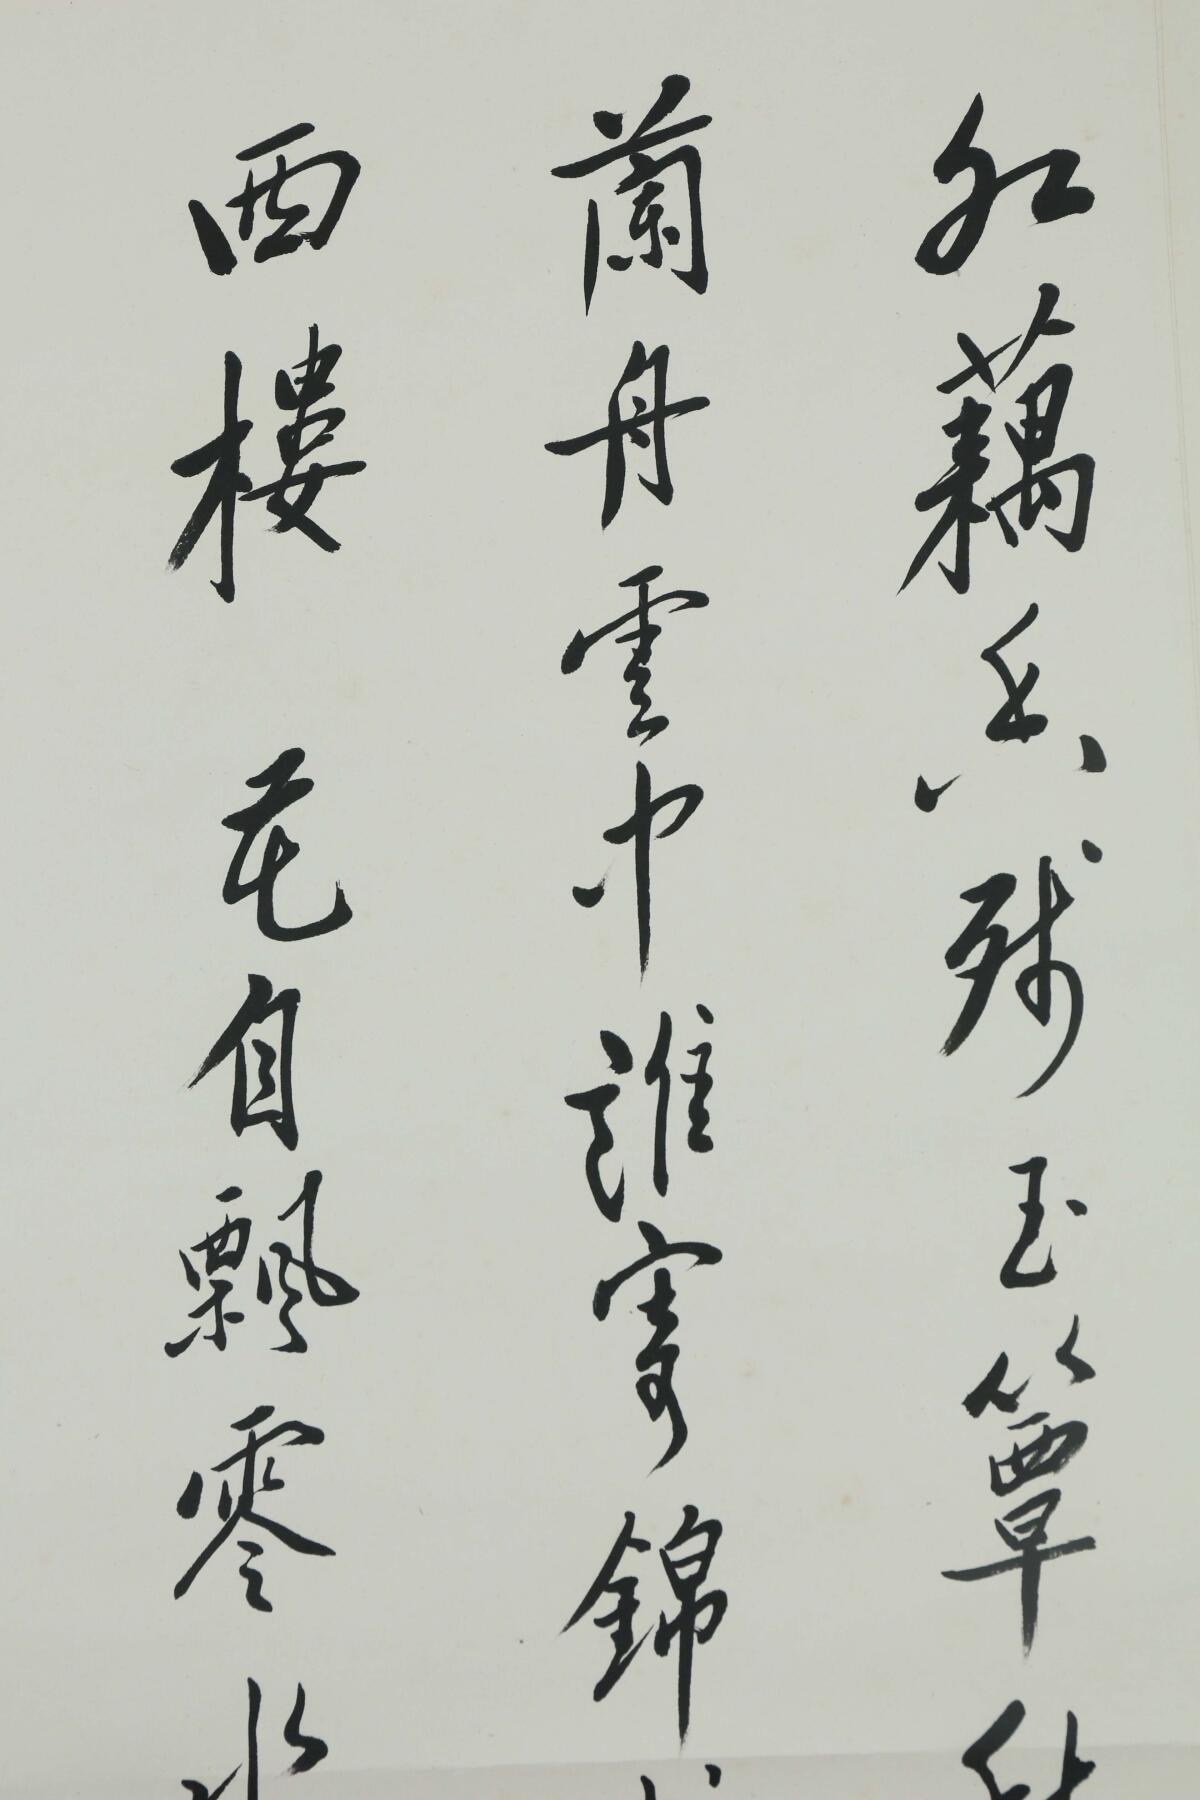 紅藕香殘玉簟
蘭舟雲中誰寄錦
西樓 花自飄零